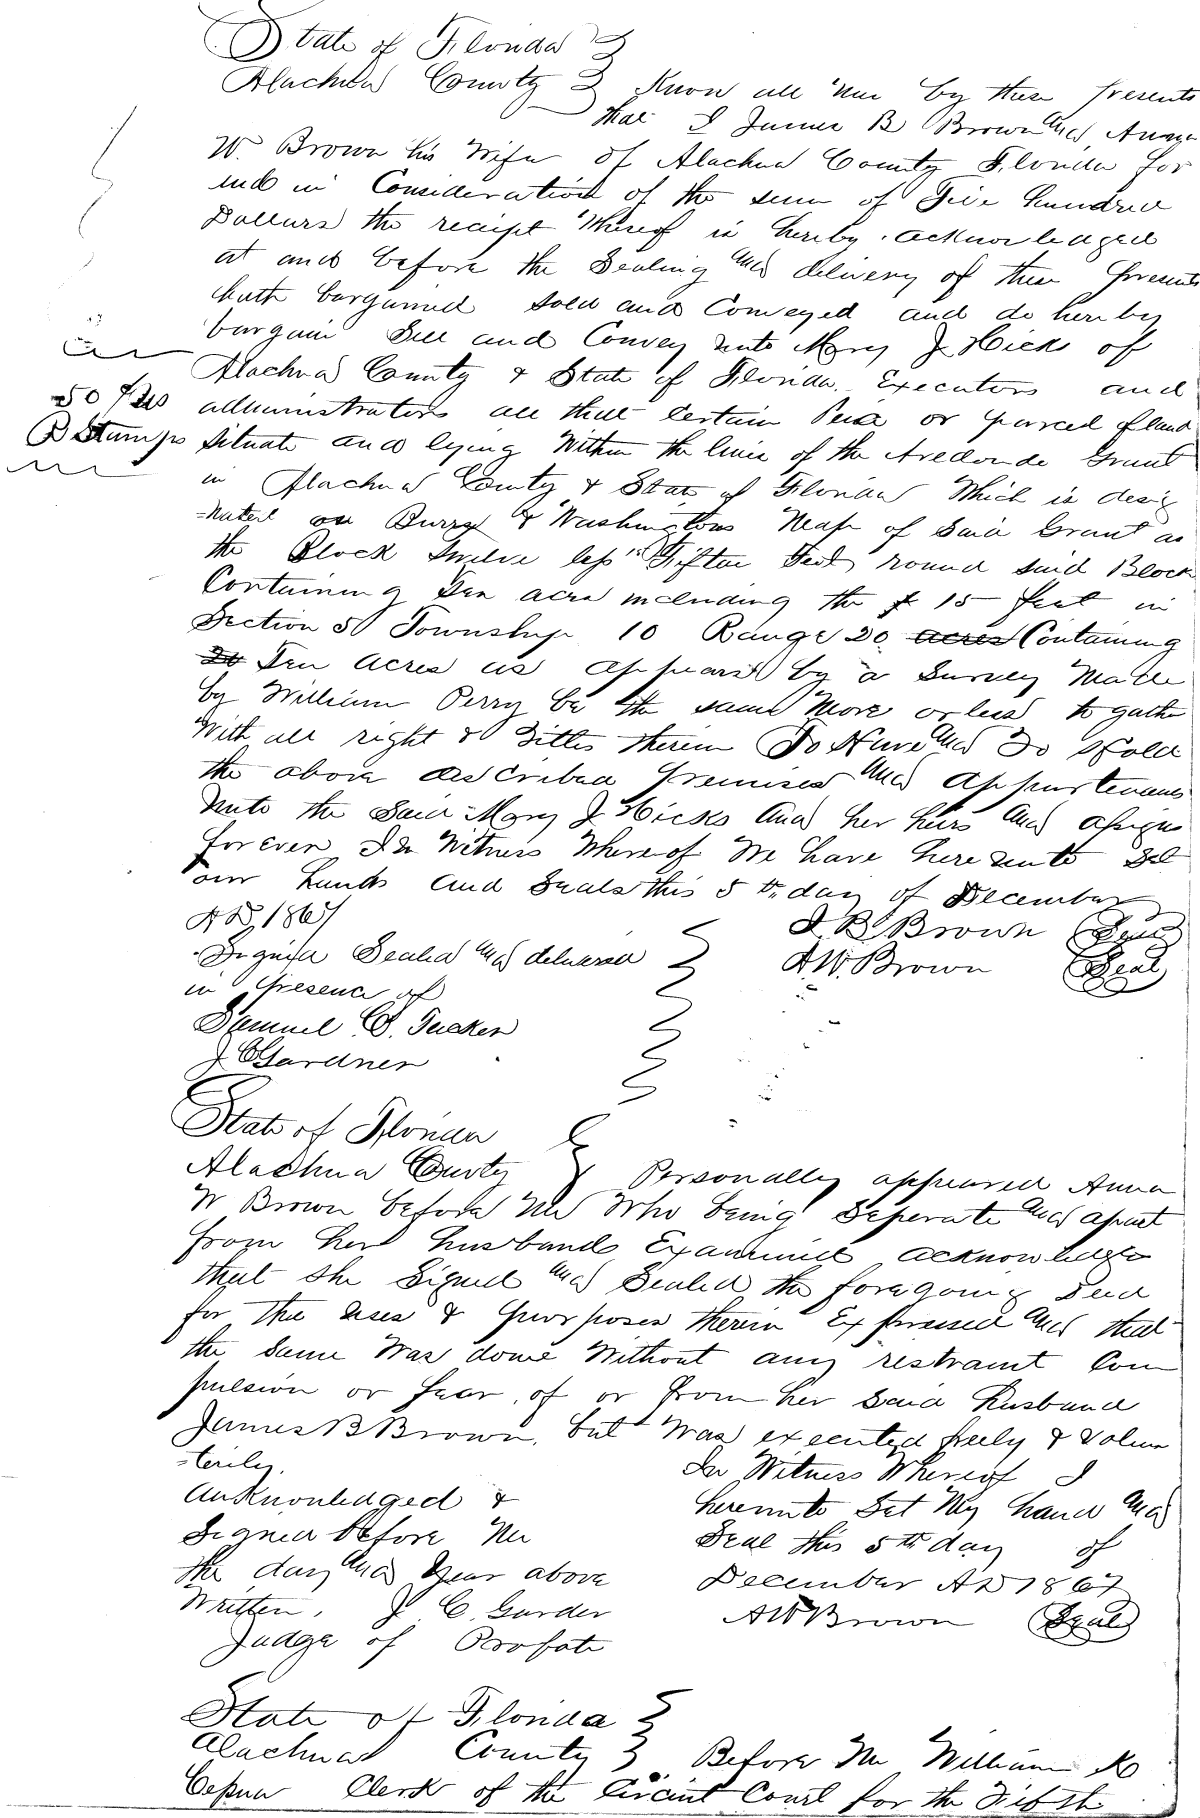 State of Florida
Alachua County Know all men by these presents
that I James B Brown and Anna
W. Brown his Wife of Alachua County Florida for
and in Consideration of the sum of Five hundred
Dollars the receipt Whereof is hereby acknowledged
at and before the Sealing and delivery of these presents
hath bargained sold and Conveyed and do hereby
bargain Sell and Convey unto Mary J Hicks of
Alachua County & State of Florida Executors and
administrators all that certain Peice or parcel of land
50
R Stamps
situate and lying Within the lines of the Aredondo Grant
in Alachua County & State of Florida Which is desig
-nated on Washingtons Map of Said Grant as
the Block twelve less Fiftee Feet round said Block
Containing Ten acres including the 15 feet in
Section 5 Township 10 Range 20 acres Containing
20 Ten acres as appears by a Survey Made
by William Perry be the same More or less to gather
With all right & Titles therein To Have and To Hold
the above described premises and appurtenances
unto the Said Mary J Hicks and her heirs and assigns
forever In Witness Whereof We have here unto Set
our hands and Seals this 5th day of December
AD, 1867
J. B. Brown Seal
Signed Sealed and delivered
A. W. Brown Seal
in presence of
Samuel C. Tucker
J C Gardner
State of Florida
Alachua County Personally appeared Anna
W Brown before me Who being Seperate and apart
from her husband Examined acknowledges
that she Signed and Sealed the foregoing Deed
for the uses & purposes therein Expressed and that
the same Was done Without any restraint Com
pulsion or fear of or from her Said husband
James B Brown, but Was executed freely & Volun
-terily.
In Witness Whereof I
Anknowledged &
hereunto Set My hand and
Signed before Me
Seal this 5th day of
the day and year above
December AD 1867
Written. J C Garder
A W Brown Seal
Judge of Probate
State of Florida
Alachua County Before Me William K
Cessna Clerk of the Circuit Court for the Fifth